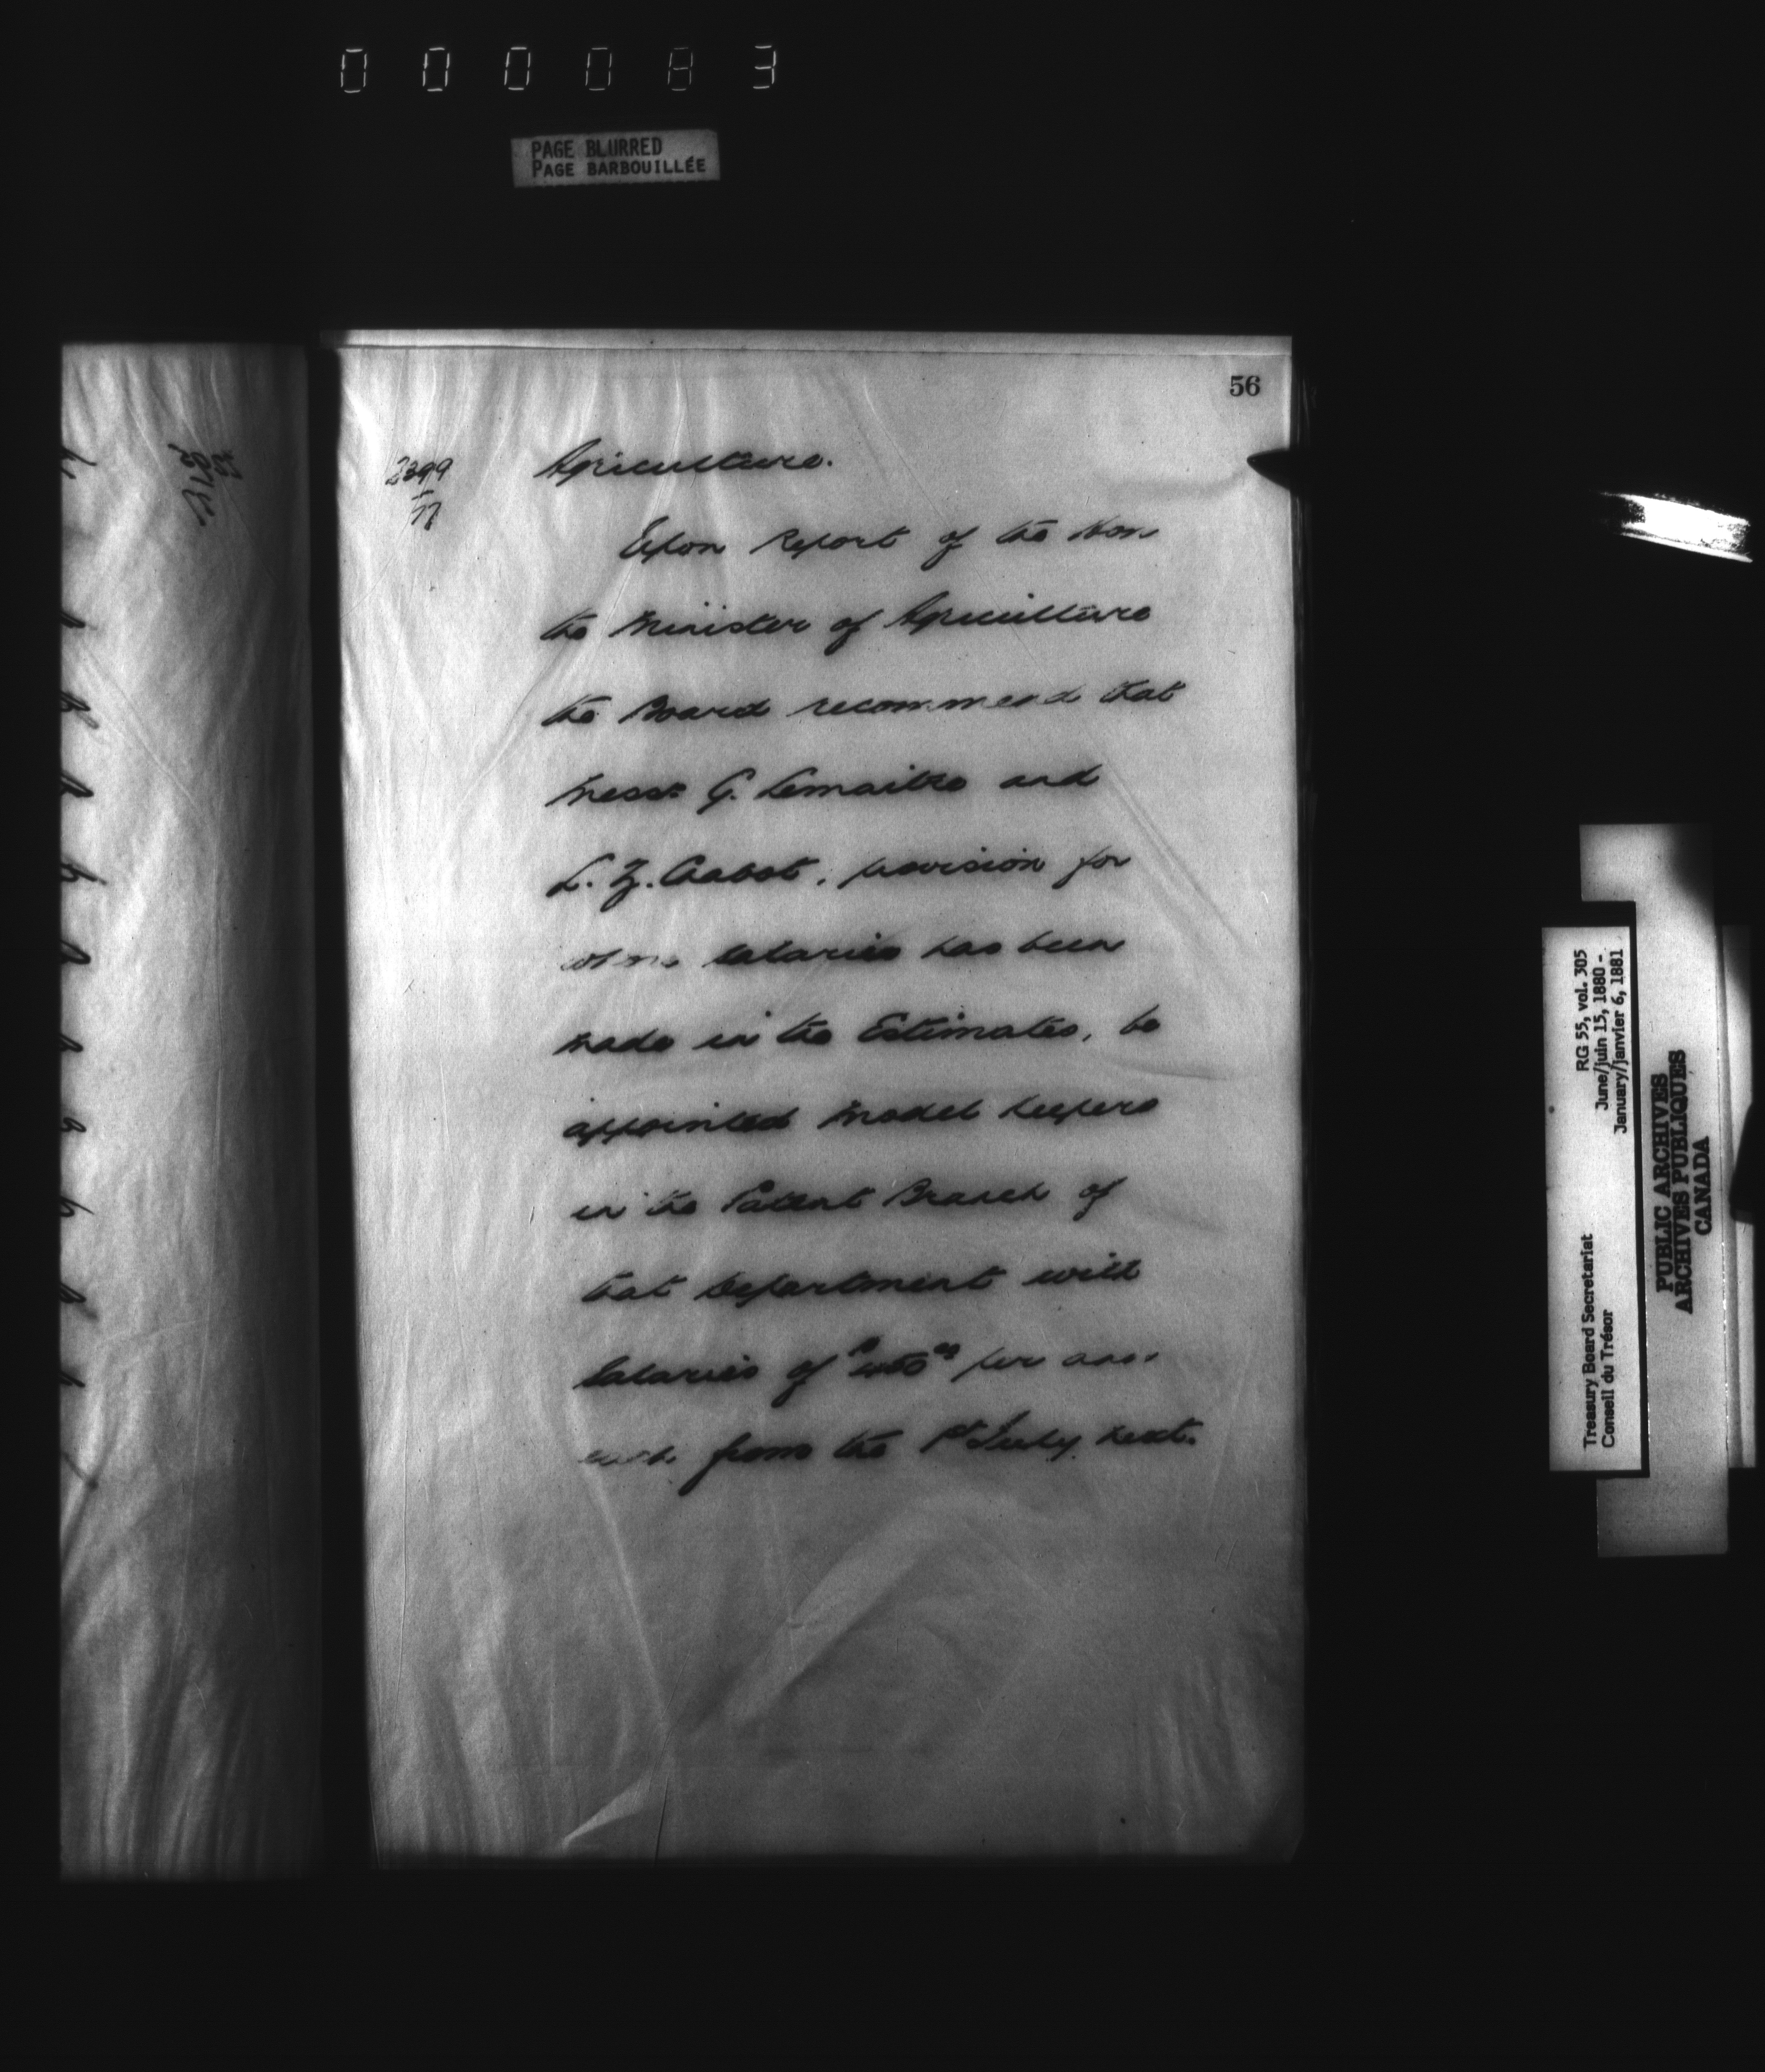 000083
PAGE BLURRED
PAGE BARBOUILLÉE
56
2399
77
Agriculture.
Upon Report of the Hon
the Minister of Agriculture
the Board recommend that
Messrs G. Lemaitre and
L. Z. provision for
whose salaries has been
made in the Estimates, be
appointed Model keepers
in the Patent Branch of
that Department with
Salaries of per ann.
each from the 1st July next.
RG 55, vol. 305
June/juin 15, 1880 -
January/janvier 6, 1881
Treasury Board Secretariat
Conseil du Trésor
PUBLIC ARCHIVES
ARCHIVES PUBLIQUES
CANADA